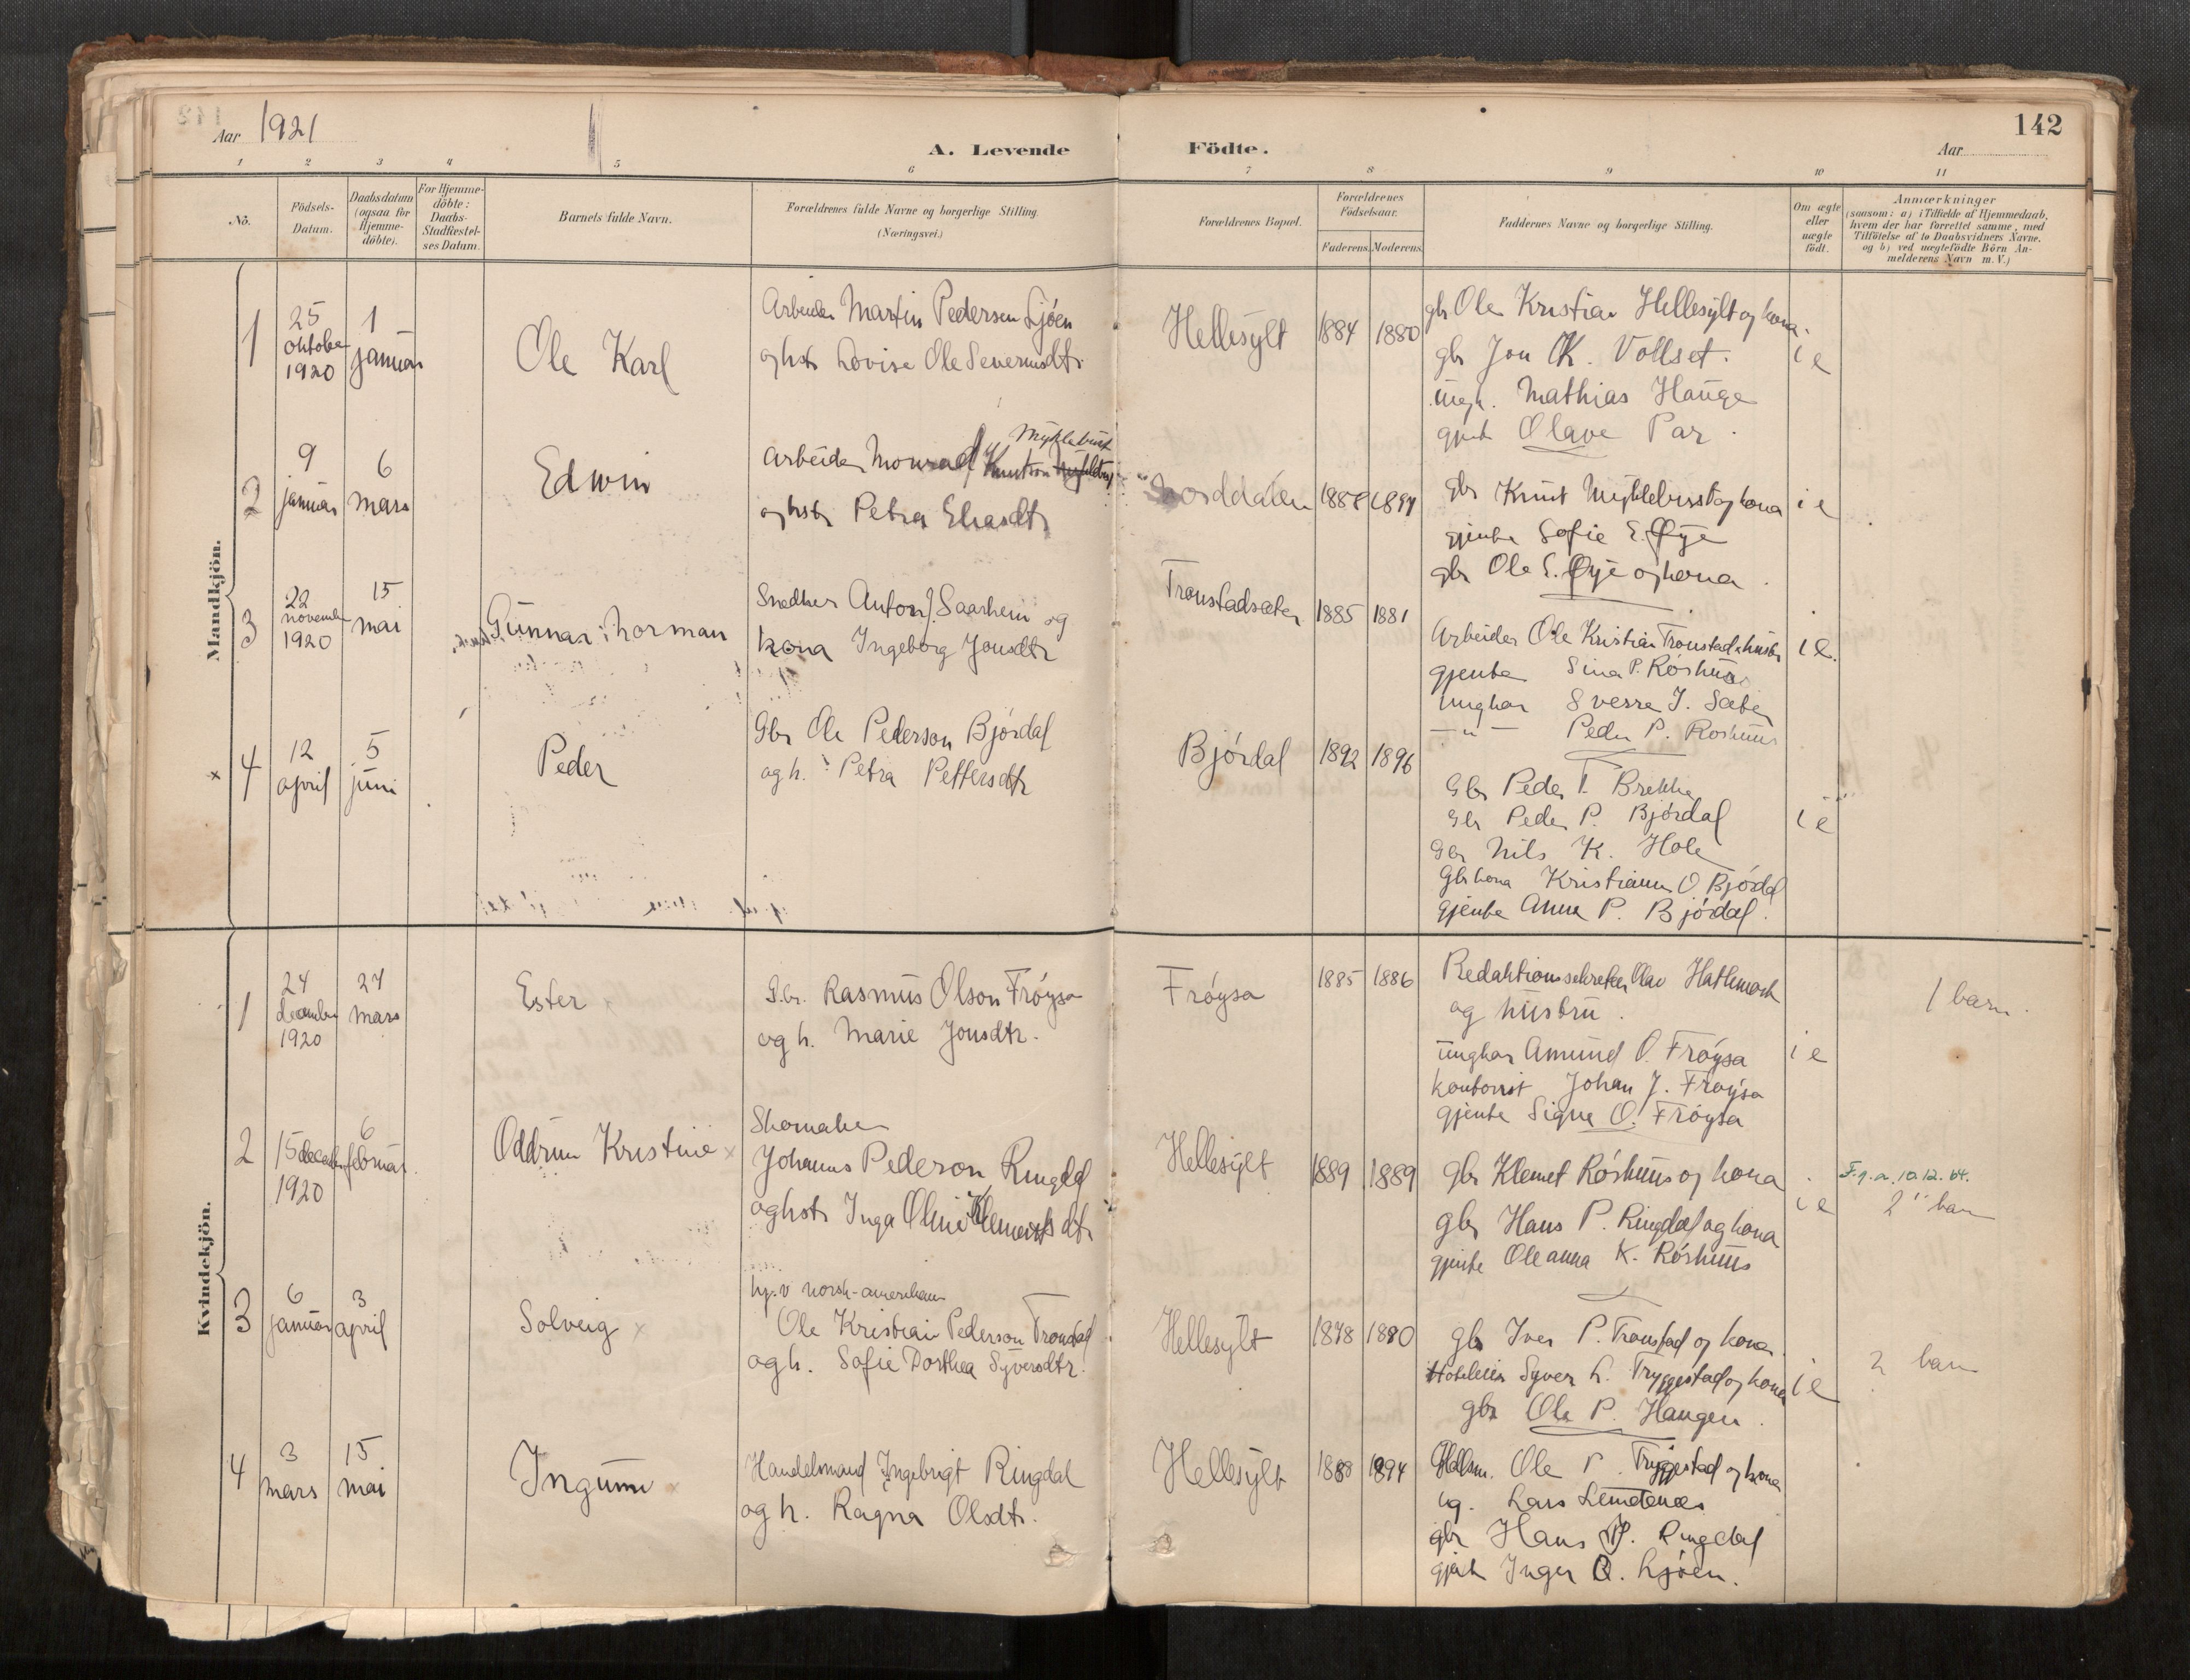 142
Aar 1921
A. Levende Födte.
Aar
1 2 3 4 5 6 7 8 9 10 11
No.
Födsels-Datum.
Daabsdatum (ogsaa for Hjemme-döbte).
For Hjemme-döbte: Daabs-Stadfæstel-ses Datum.
Barnets fulde Navn.
Forældrenes fulde Navne og borgerlige Stilling.
(Næringsvei.)
Forældrenes Bopæl.
Forældrenes Födselsaar.
Faderens. Moderens.
Faddernes Navne og borgerlige Stilling.
Om ægte eller uægte födt.
Anmærkninger
(saasom: a) i Tilfælde af Hjemmedaab,
hvem der har forrettet samme, med
Tilföielse af to Daabsvidners Navne.
og b) ved uægtefödte Börn An-
melderens Navn m. V.)
Mandkjön.
1
25 oktober 1920
1 januar
Ole Karl
Arbeider Martin Pedersen Ljøen
og hstr Lovise Ole Severinsdtr
Hellesylt
1884 1880
gbr Ole Kristian Hellesylt og kona.
gbr Jon K. Vollset.
ungk. Mathias Hauge
gjent Olave Par.
i e
2
9 januar
6 mars
Edwin
Myklebust
Arbeider Monrad Knutson
og hstr Petra Eliasdtr
Norddalen
1888 1894
gbr Knut Myklebust og kona
gjenta Sofie E. Øye
gbr Ole E. Øye og kona.
i e
3
22 november 1920
15 mai
Gunnar Norman
Snedker Anton J. Saarheim og
kona Ingeborg Jonsdtr
Tronstadsæter
1885 1881
Arbeider Ole Kristian Tronstad & hustr
gjenta Sina P. Røshus
unghar Sverre J. Sæter
— " — Peder P. Røshus
i e.
x 4
12 april
5 juni
Peder
Gbr Ole Pederson Bjørdal
og h. Petra Pettersdtr
Bjørdal
1892 1896
Gbr Peder T. Brekke
Gbr Peder P. Bjørdal
Gbr Nils K. Hole
Gbr kona Kristianne O Bjørdal
gjenta Anna P. Bjørdal.
i e
Kvindekjön.
1
24 december 1920
27 mars
Ester x
G.br. Rasmus Olson Frøysa
og h. Marie Jonsdtr.
Frøysa
1885 1886
Redaktionssekretær Olav Hatlemark
og hustru.
unghar Amund O. Frøysa
kontorist Johan J. Frøysa
gjenta Signe O. Frøysa
i e
1 barn.
2
15 decemb 1920
6 februar
Oddrun Kristine x
Skomaker
Johannes Pederson Ringdal
og hstr Inga Oline Klemetsdtr
Hellesylt
1889 1889
gbr Klemet Røshus og kona
gbr Hans P. Ringdal og kona
gjente Oleanna K. Røshus
i e
F.g.a. 10.12.64.
2 barn
3
6 januar
3 april
Solveig x
hp.v norsk-amerikaner
Ole Kristian Pederson Tronstad
og h. Sofie Dorthea Syversdtr.
Hellesylt
1878 1880
gbr Iver P. Tronstad og kona
Hoteleier Syver L. Tryggestad og kona
gbr Ole P. Haugen.
i e
2 barn
4
3 mars
15 mai
Ingunn x
Handelsmand Ingebrigt Ringdal
og h. Ragna Olsdtr.
Hellesylt
1888 1894
Hdlsm. Ole P. Tryggestad og kona
ug. Lars
gbr Hans P. Ringdal
gjent Inger O. Ljøen.